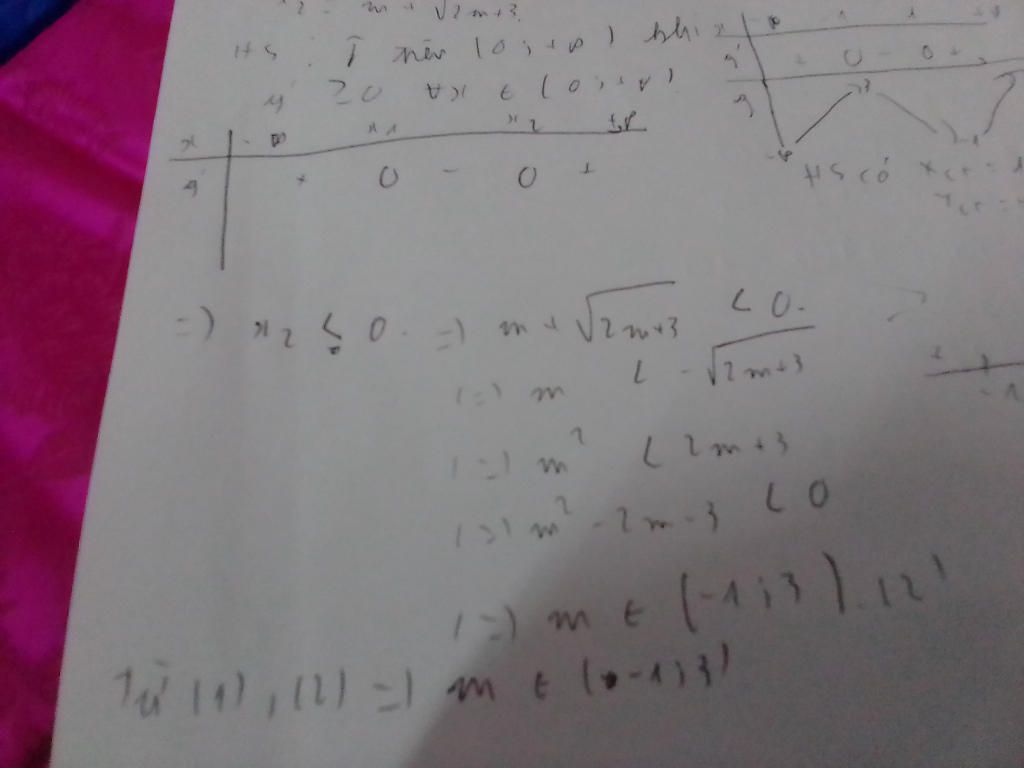 x₂ = m + √2m+3
HS ↑ trên (0 ; +∞) khi
y' ≥ 0 ∀x ∈ (0 ; +∞)
x -∞ x₁ x₂ +∞
y' + 0 - 0 +
x -∞ 1 +∞
y' + 0 - 0 +
y
-∞
HS có x
=) x₂ ≤ 0. =) m + √2m+3 < 0.
(=) m < -√2m+3
(=) m² < 2m+3
(=) m² - 2m - 3 < 0
(=) m ∈ (-1 ; 3). (2)
Từ (1), (2) =) m ∈ (-1 ; 3)